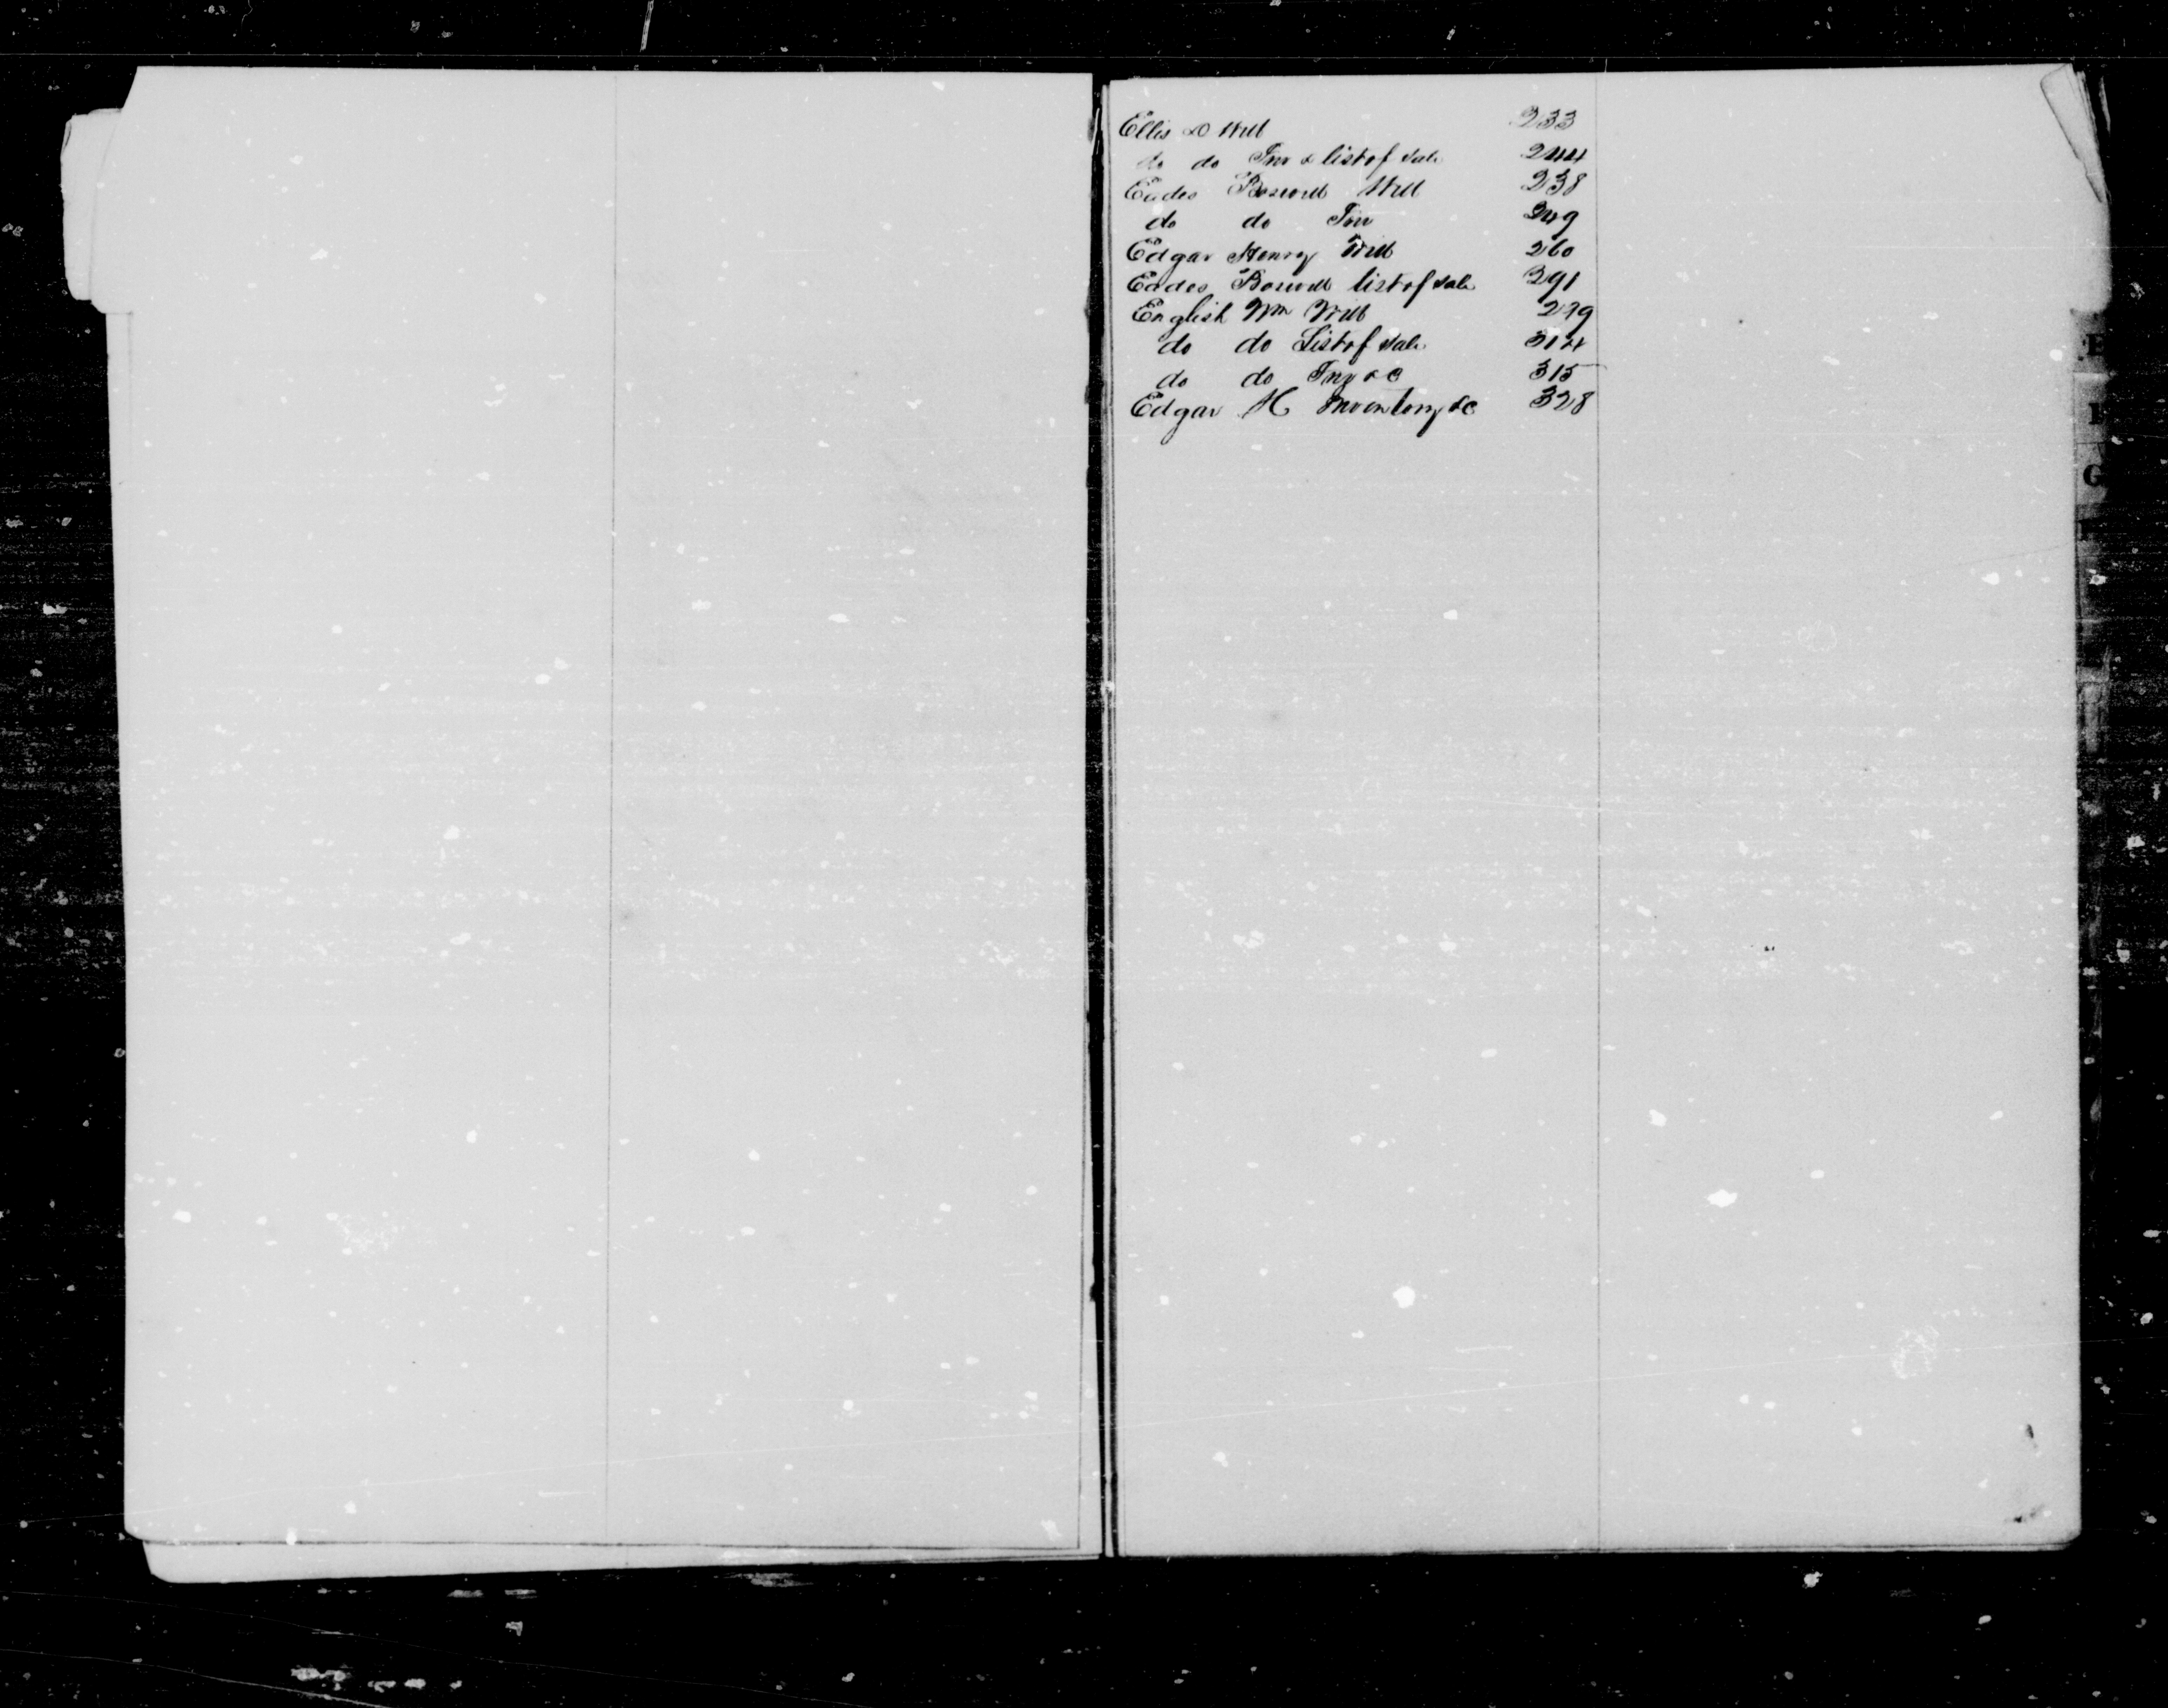 Ellis D Will 233
do do Inv & list of sale 244
Eades Boswell Will 238
do do Inv 249
Edgar Henry Will 260
Eades Boswell list of sale 291
English Wm Will 299
do do List of sale 314
do do Inv &c 315
Edgar H Inventory &c 328
E
G